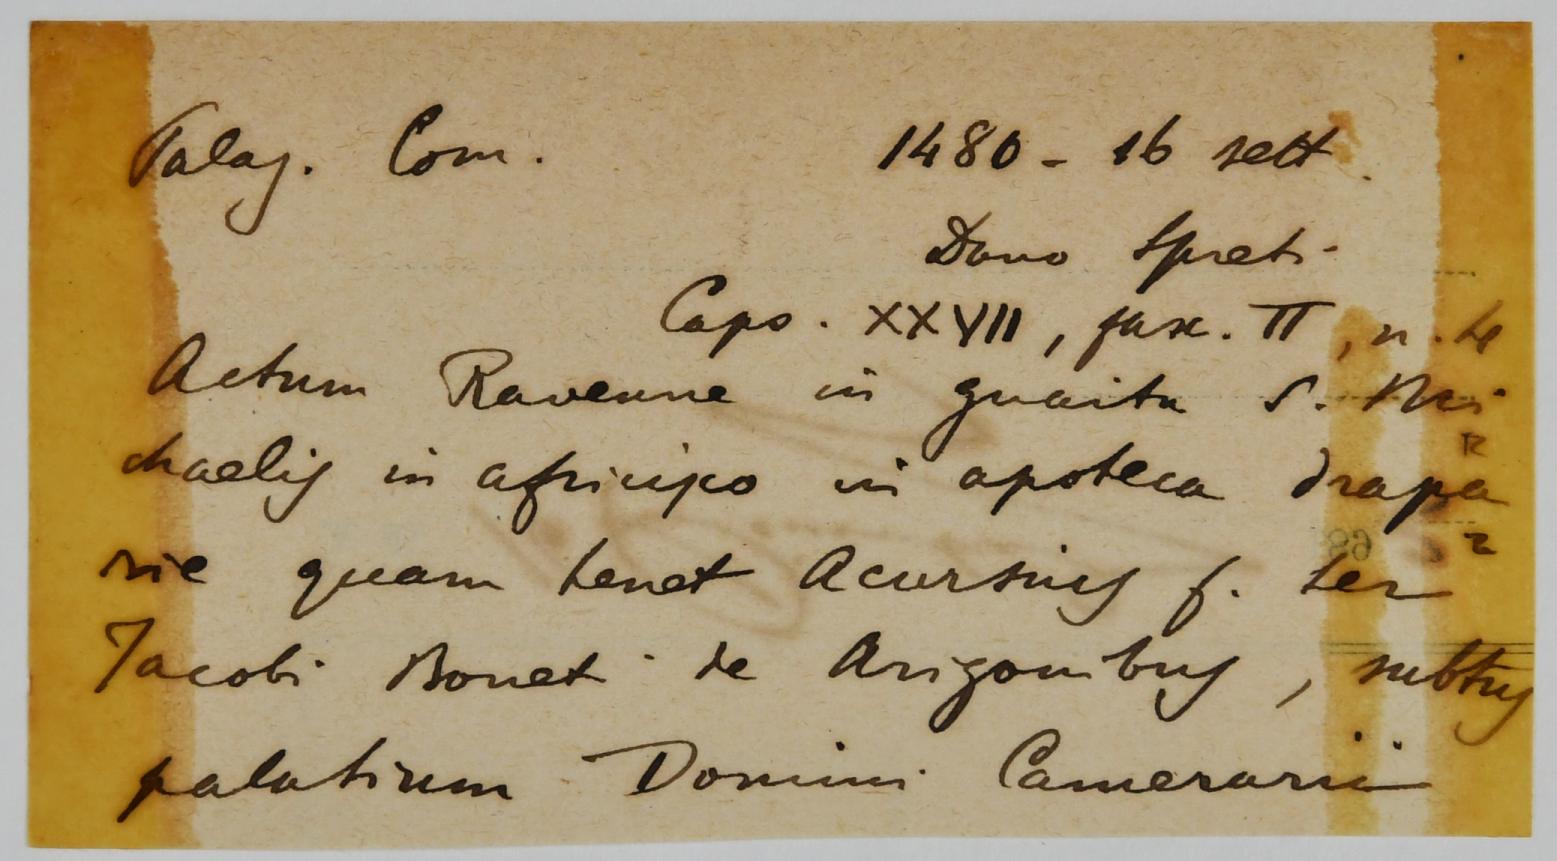 Palaz. Com. 1480 - 16 sett.
Dono Spreti
Caps. XXVII, fasc. II, n.
Actum Ravenne in guaita S. Mi
chaelis in africisco in apoteca drapa
rie quam tenet Acursius f. ser
Jacobi Boneti de Arigonibus, subtus
palatium Domini Camerarii